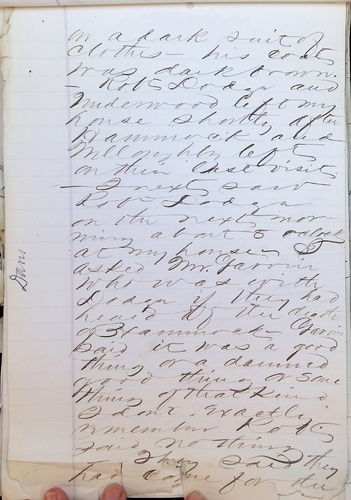 on a dark suit of
clothes - his coat
was dark brown.
- Robt Dodge and
Underwood left my
house shortly after
Hammock and
Willoughby left
on their last visit
- I next saw
Robt Dodge
on the next mor
ning about 5 o'clock
at my house. I
asked Mr. Garvin
who was with
Dodge if they had
heard of the death
of Hammock - Garvin
said it was a good
thing or a damned
good thing or some
thing of that kind
I dont exactly
remember Robt
said nothing
They said they
had come for the
Davis